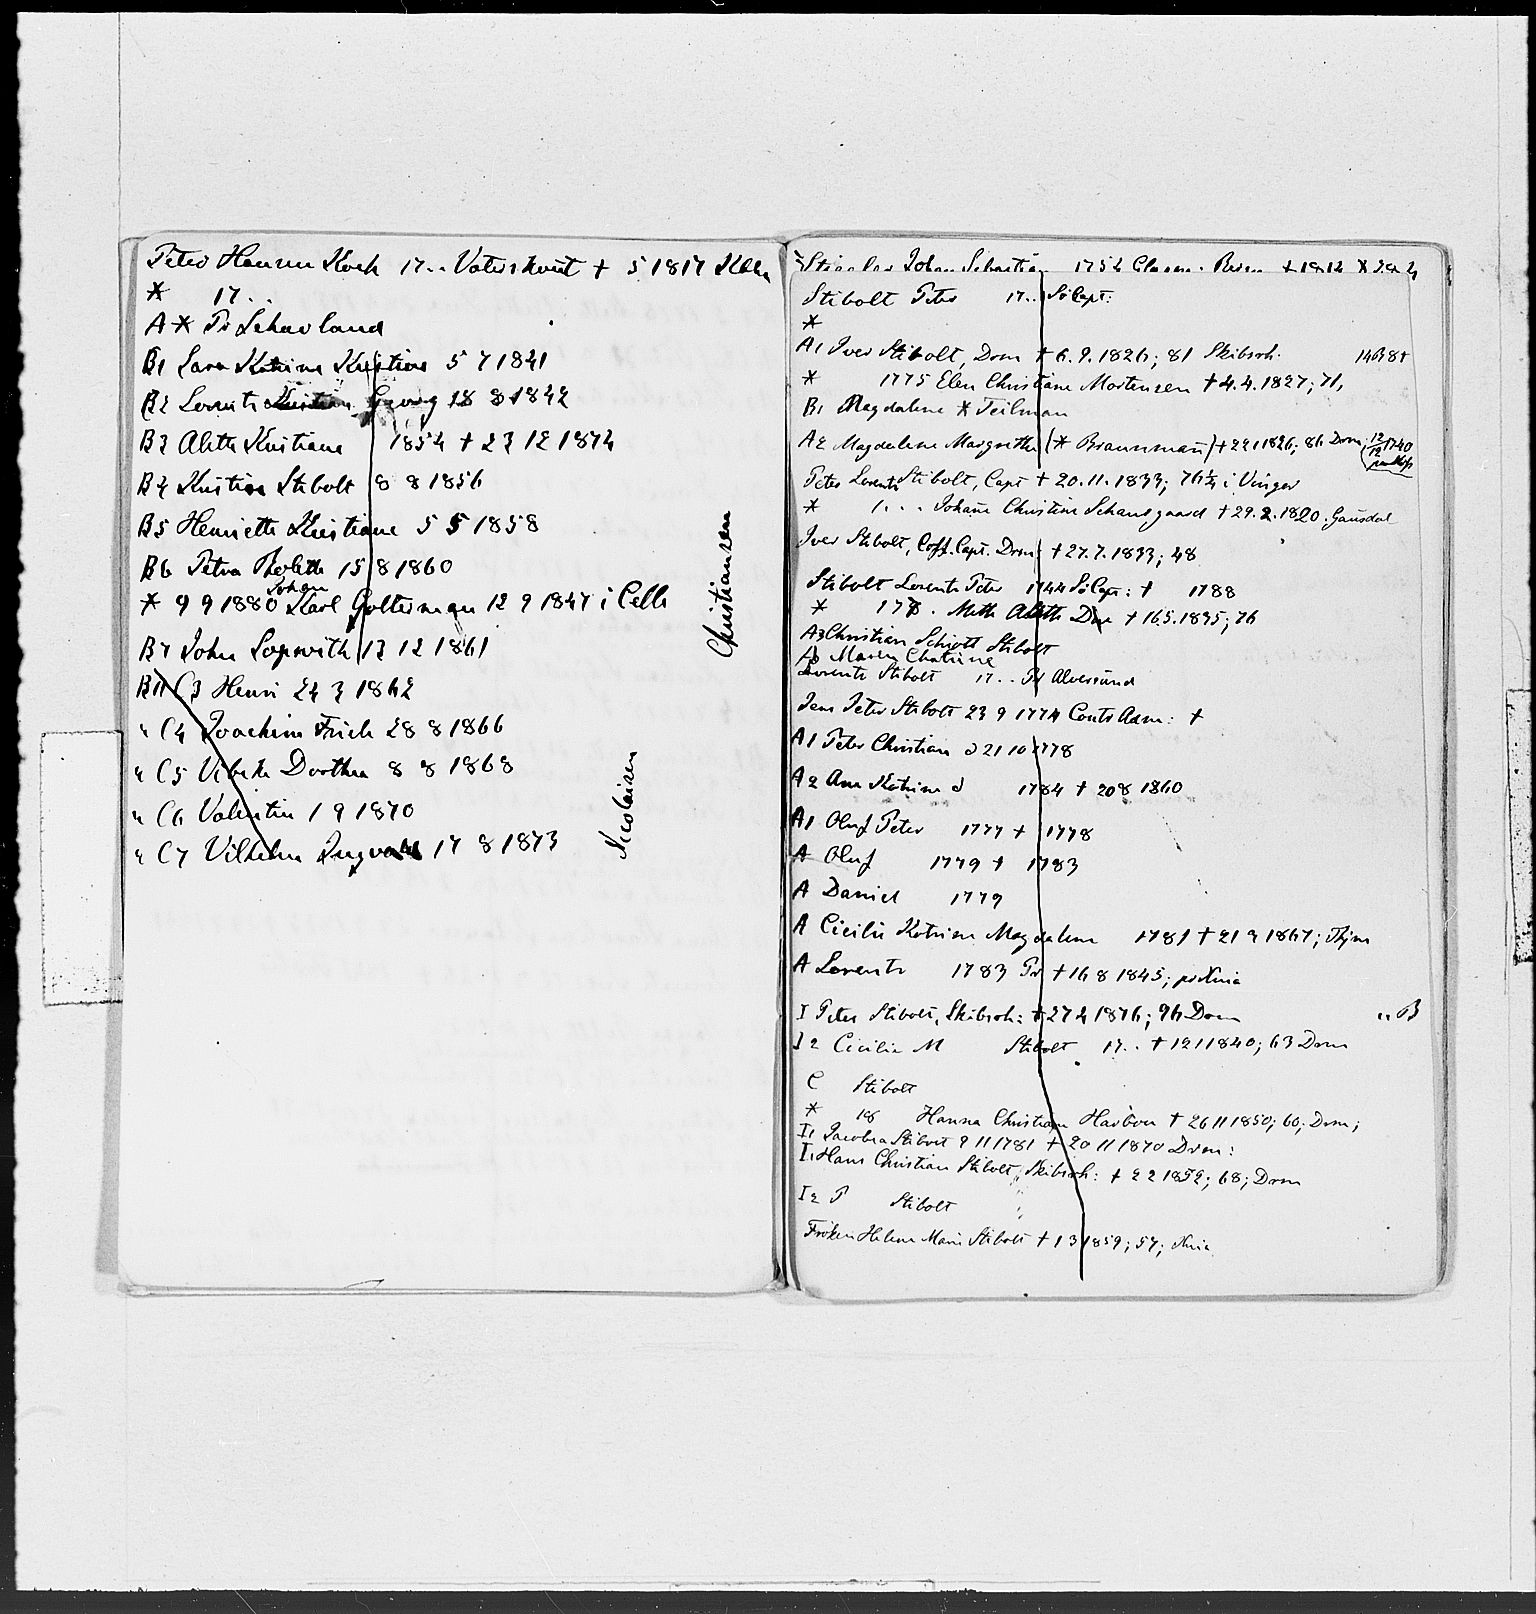 Peter Hansen Koch 17.. Vaterskvist + 5 1817 Kbhn
* 17..
A * Pr Schavland
B1 Sara Katrine Kristine 5 7 1841
B2 Lorents Kristian Georg 18 8 1842
B3 Alette Kristiane 1854 + 23 12 1874
B4 Kristine Stibolt 8 8 1856
B5 Henriette Kristiane 5 5 1858
B6 Petra Nolette 15 8 1860
* 9 9 1880 Johan Karl Golterman 12 9 1847 i Celle
B7 John Sopwith 13 12 1861
B11 C3 Henri 24 3 1862
" C4 Joachim Frich 28 8 1866
" C5 Vibeke Dorthea 8 8 1868
" C6 Valentin 1 9 1870
" C7 Vilhelm Ingvald 17 8 1873
Christiansen
Nicolaisen
Johan Sebastian 1754 + 1812
Stibolt Peter 17.. SöCapt:
*
A1 Iver Stibolt, Drm + 6.9.1826; 81 Skibsch.
* 1775 Elen Christiane Mortensen + 4.4.1827; 71,
B1 Magdalene * Teilman
A2 Magdalene Margrethe (* Braunman) + 2211826; 86 Drm; 12/12 1740
Peter Lorents Stibolt, Capt + 20.11.1833; 76 1/4 i Vinger
* 1... Johanne Christine Schausgaard + 29.2.1820. Gausdal
Iver Stibolt, Coff.Capt. Drm: + 27.7.1833; 48
Stibolt Lorents Peter 1744 SöCap: + 1788
* 177. Mette Alette Due + 16.5.1835; 76
A3 Christian Schiött Stibolt
Maren Chatrine
Lorents Stibolt 17.. Pr Alversund
Jens Peter Stibolt 23 9 1774 ContsAdm: +
A1 Peter Christian d 21 10 1778
A2 Ane Katrine d 1784 + 20 8 1860
A1 Oluf Peter 1777 + 1778
A Oluf 1779 + 1783
A Daniel 1779
A Cicilie Katrine Magdalene 1781 + 21 9 1867; Thjm
A Lorents 1783 Pr + 16 8 1845;
I Peter Stibolt, Skibsch: + 27 4 1876; 96 Drm " B
I2 Cicilie M Stibolt 17.. + 1211840; 63 Drm
C Stibolt
* 18 Hanna Christiane Harboe + 26 11 1850; 60; Drm;
I1 Jacobea Stibolt 9 11 1781 + 20 11 1870 Drm:
I1 Hans Christian Stibolt, Skibsch: + 2 2 1852; 68; Drm
I2 P Stibolt
Fröken Helene Marie Stibolt + 1 3 1859; 57; Xnia